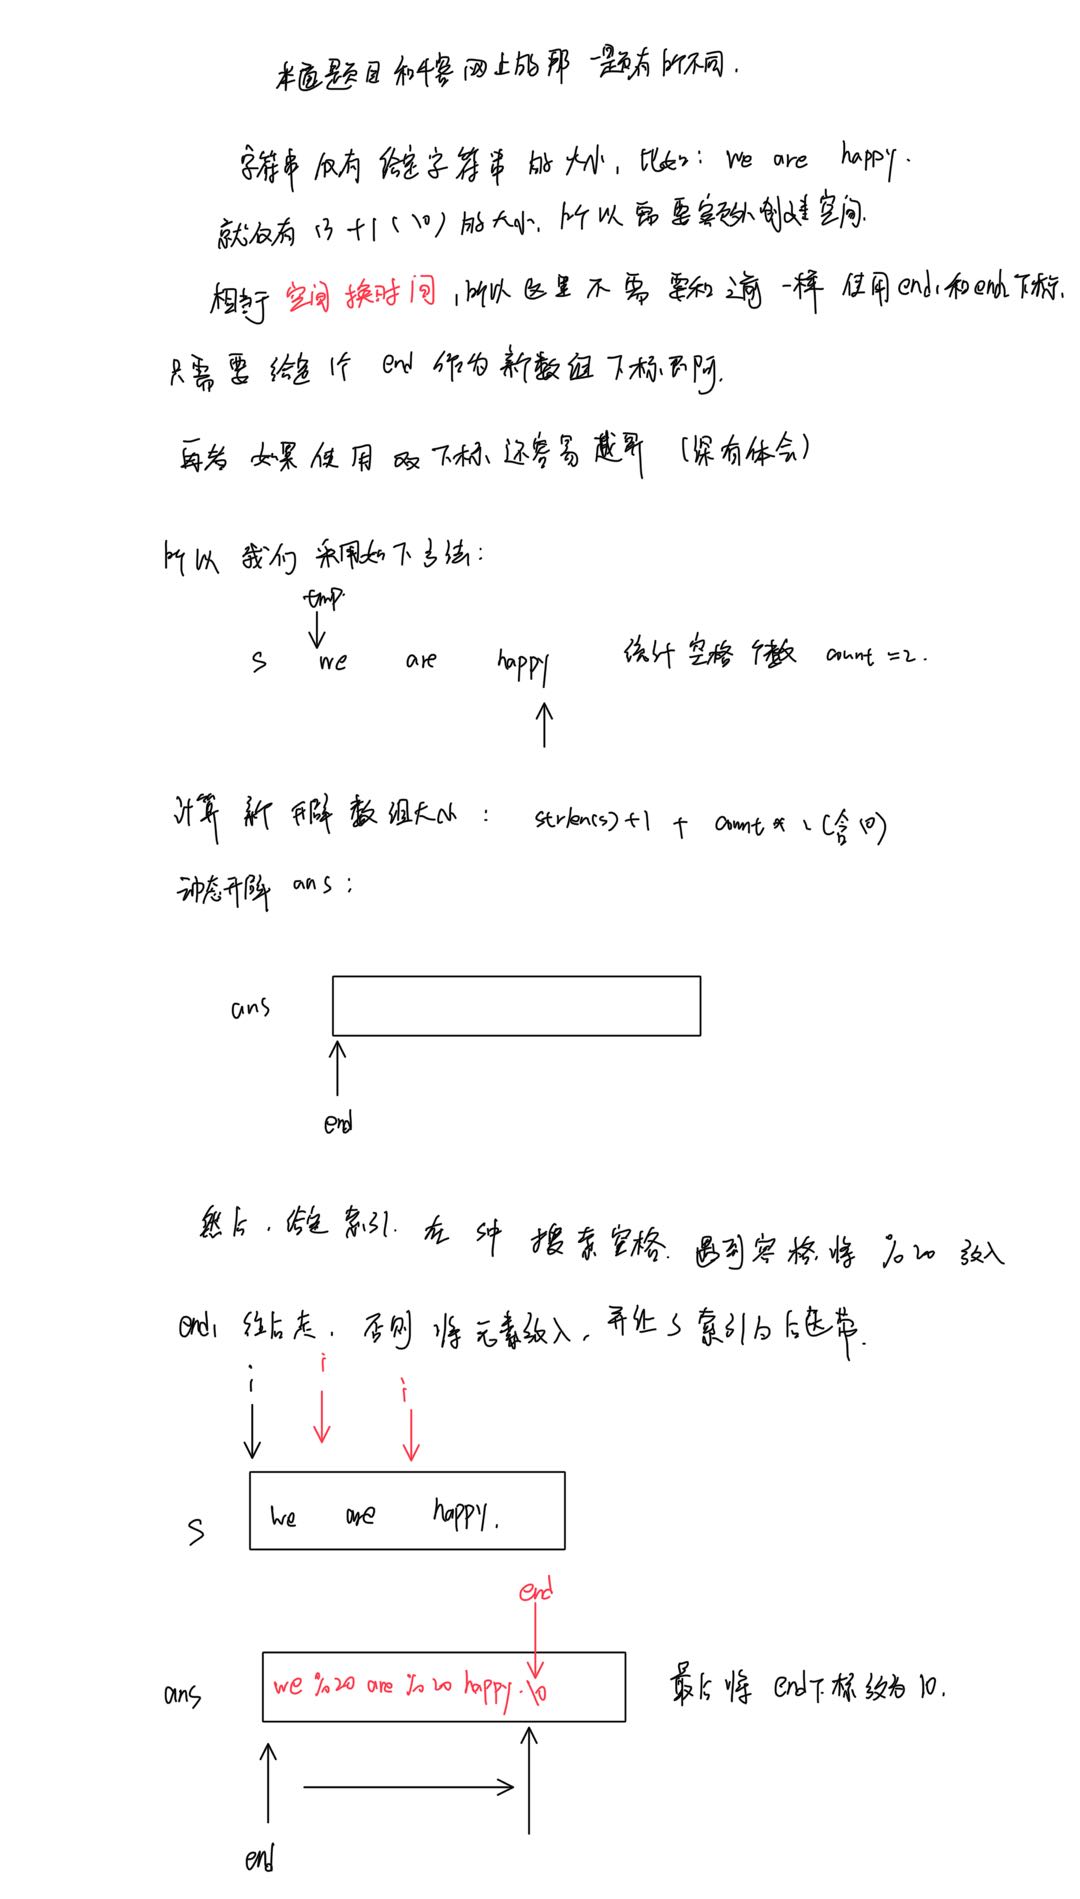 本道题目和牛客网上的那一题有所不同.
字符串仅有给定字符串的大小, 比如: we are happy.
就仅有13+1(\0)的大小, 所以需要额外创建空间.
相当于空间换时间, 所以这里不需要和之前一样使用end1和end2下标,
只需要给定1个end作为新数组下标即可.
再者如果使用双下标还容易越界 (深有体会)
所以我们采用如下方法:
tmp.
s we are happy 统计空格个数 count=2.
计算新开辟数组大小: strlen(s)+1 + count*2 (含\0)
动态开辟ans:
ans
end
然后, 给定索引. 在s中搜索空格. 遇到空格, 将%20放入
end, 往后走, 否则将元素放入, 并让s索引向后迭带.
i i i
s we are happy.
end
ans we%20are%20happy.\0 最后将end下标改为\0.
end